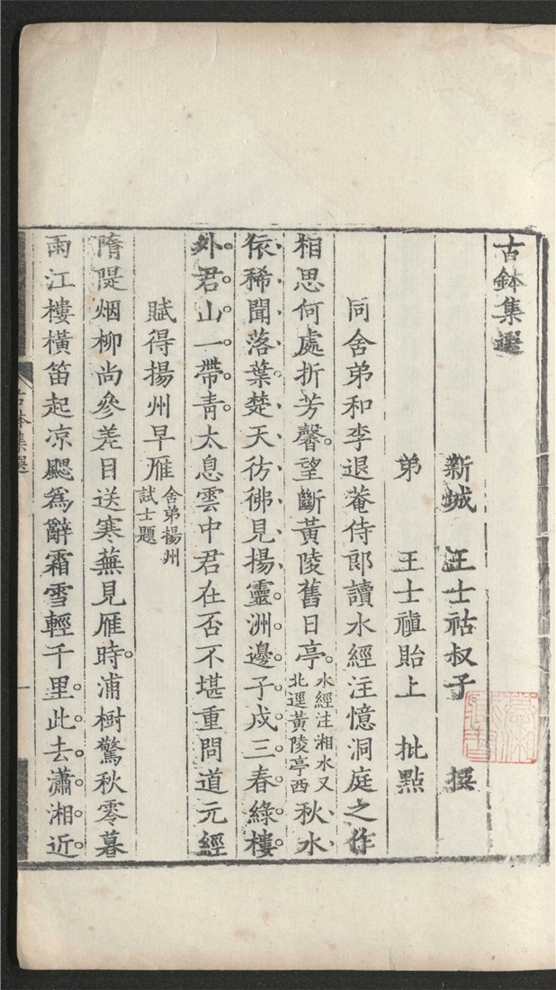 古鉢集選
新城 王士祜叔子 撰
弟 王士禛貽上 批點
同舍弟和李退菴侍郎讀水經注憶洞庭之作
相思何處折芳馨望斷黃陵舊日亭水經注湘水又北逕黃陵亭西秋水
依稀聞落葉楚天彷彿見揚靈洲邊子戍三春綠樓
外君山一帶青太息雲中君在否不堪重問道元經
賦得揚州早雁舍弟揚州試士題
隋隄烟柳尚參差目送寒蕪見雁時浦樹驚秋零暮
雨江樓橫笛起凉颸為辭霜雪輕千里此去瀟湘近
古鉢集選
一